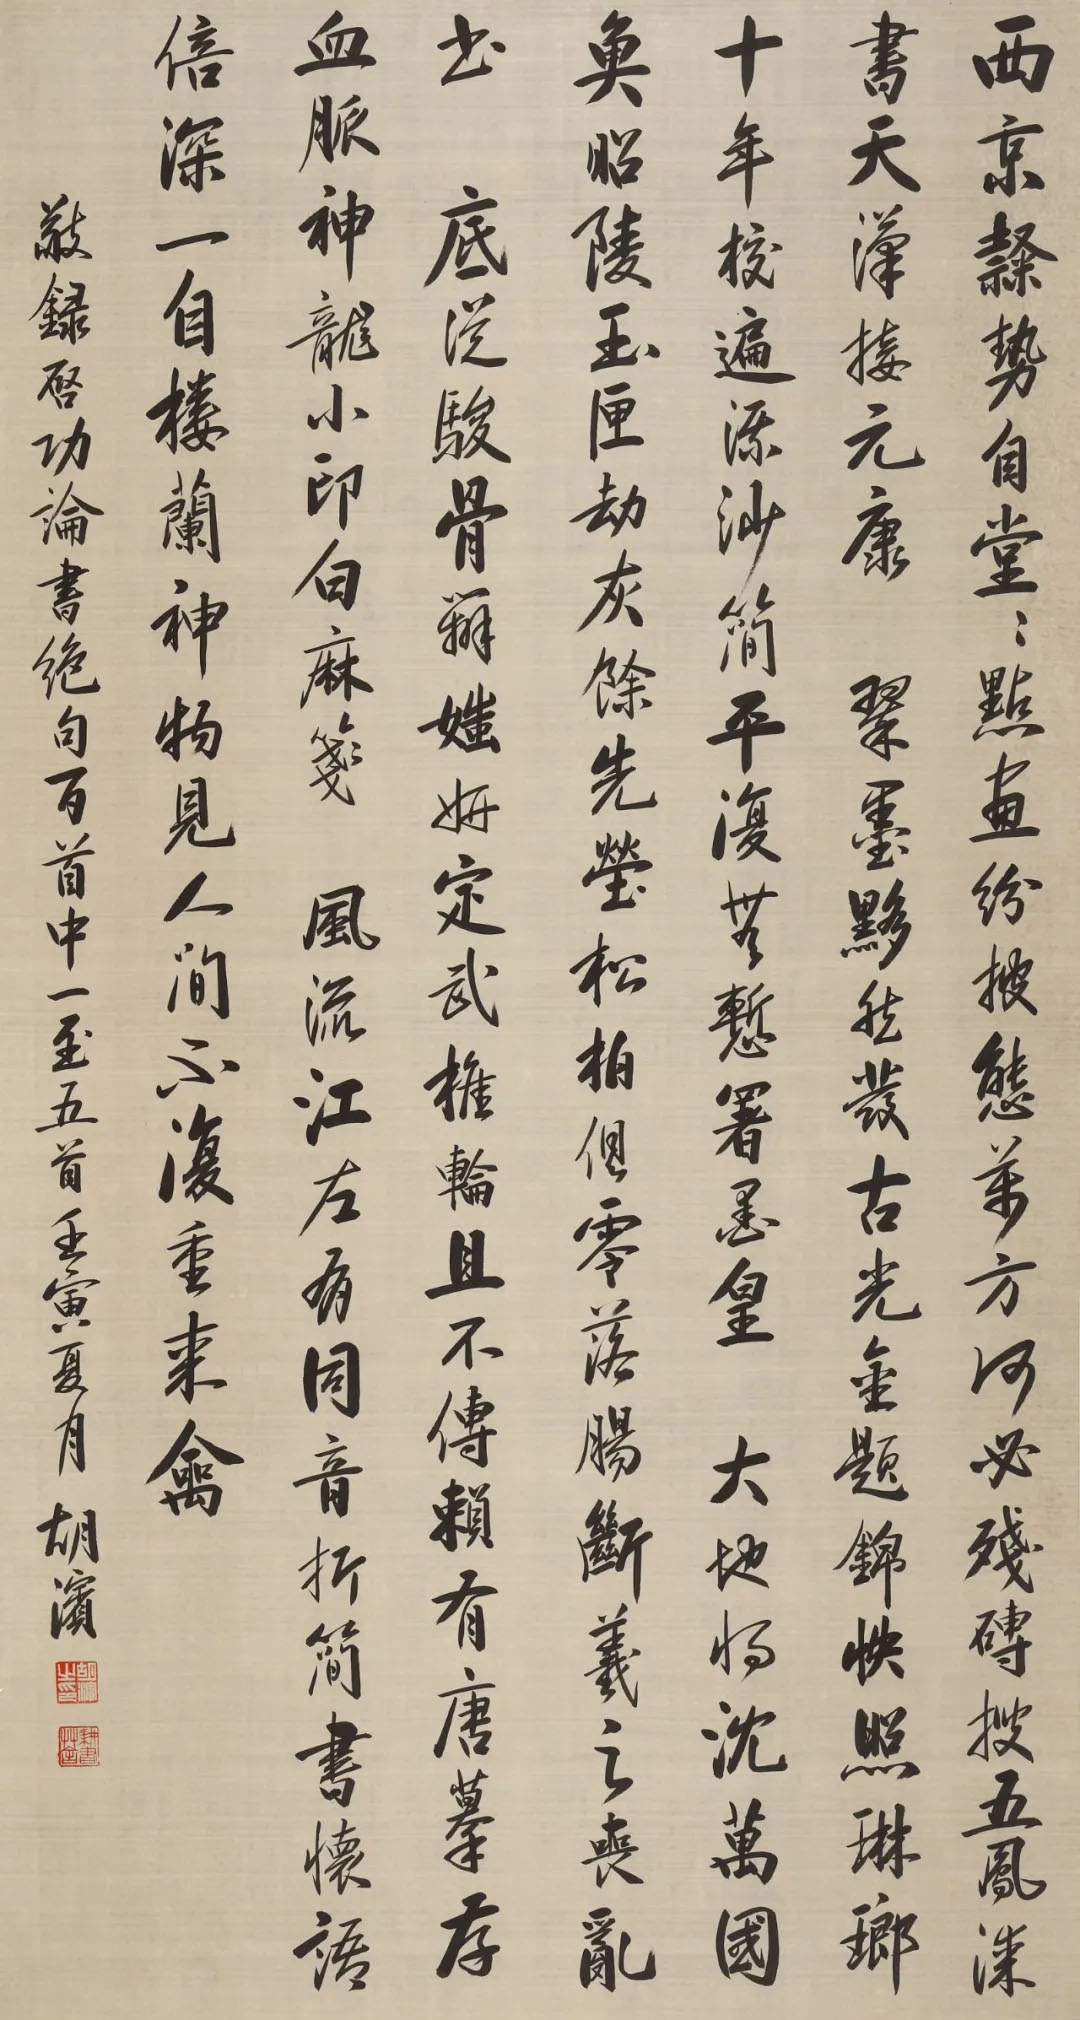 西京隸勢自堂〻點畫紛披態萬方何必殘磚搜五鳳漆
書天漢接元康　翠墨黟然發古光金題錦帙照琳瑯
十年校遍流沙簡平復無慙署墨皇　大地將沈萬國
魚昭陵玉匣劫灰餘先塋松柏但零落腸斷羲之喪亂
書　底從駿骨辨媸妍定武椎輪且不傳賴有唐摹存
血脈神龍小印白麻箋　風流江左有同音折簡書懷語
倍深一自樓蘭神物見人間不復重來禽
敬錄啓功論書絕句百首中一至五首壬寅夏月　胡濱